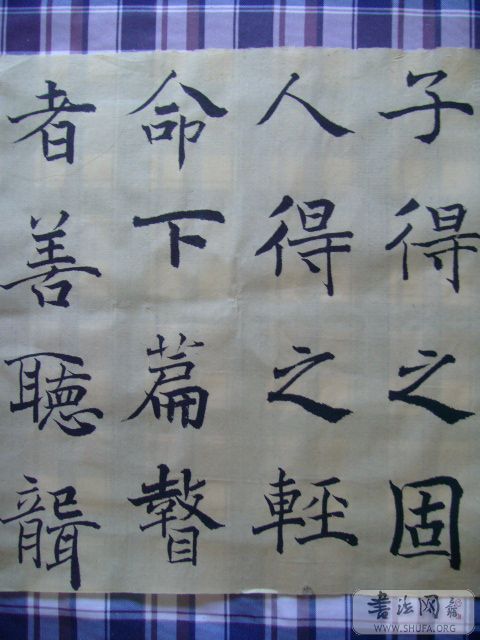 子得之固
人得之輕
命下篇瞽
者善聽聾
書法网
WWW.SHUFA.ORG